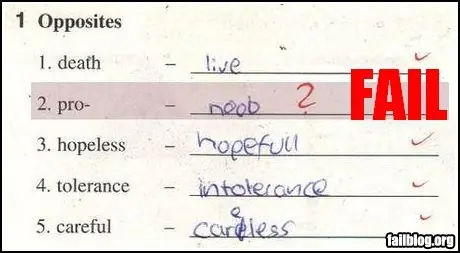 1 Opposites
1. death - live
2. pro- - noob ? FAIL
3. hopeless - hopefull
4. tolerance - intolerance
5. careful - careless
failblog.org